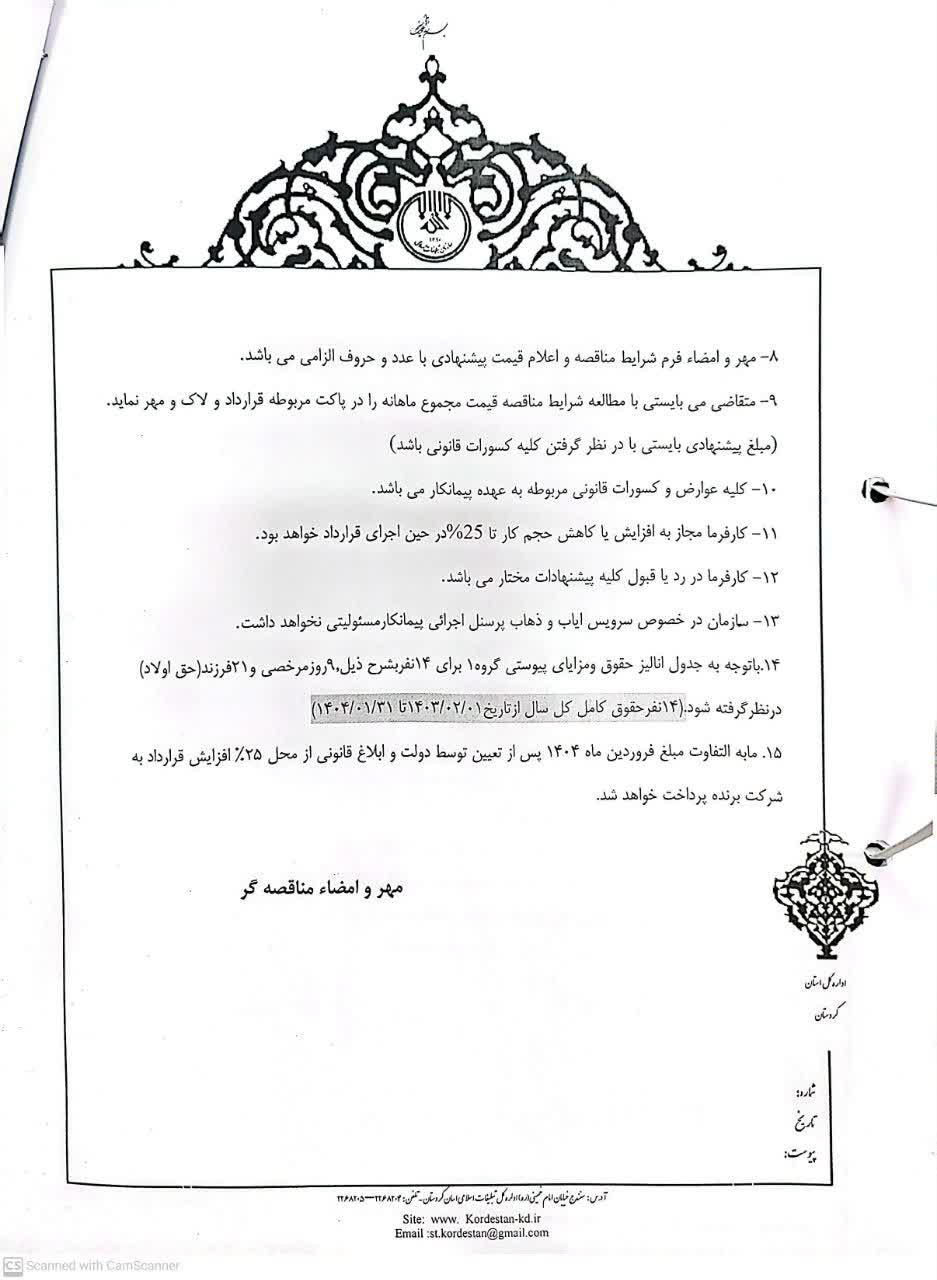 ۸- مهر و امضاء فرم شرایط مناقصه و اعلام قیمت پیشنهادی با عدد و حروف الزامی می باشد.
۹- متقاضی می بایستی با مطالعه شرایط مناقصه قیمت مجموع ماهانه را در پاکت مربوطه قرارداد و لاک و مهر نماید.
(مبلغ پیشنهادی بایستی با در نظر گرفتن کلیه کسورات قانونی باشد)
۱۰- کلیه عوارض و کسورات قانونی مربوطه به عهده پیمانکار می باشد.
۱۱- کارفرما مجاز به افزایش یا کاهش حجم کار تا 25%در حین اجرای قرارداد خواهد بود.
۱۲- کارفرما در رد یا قبول کلیه پیشنهادات مختار می باشد.
۱۳- سازمان در خصوص سرویس ایاب و ذهاب پرسنل اجرائی پیمانکارمسئولیتی نخواهد داشت.
۱۴.باتوجه به جدول انالیز حقوق ومزایای پیوستی گروه۱ برای ۱۴نفربشرح ذیل,۹روزمرخصی و۲۱فرزند(حق اولاد)
درنظرگرفته شود.(۱۴نفرحقوق کامل کل سال ازتاریخ۱۴۰۳/۰۲/۰۱تا ۱۴۰۴/۰۱/۳۱)
۱۵. مابه التفاوت مبلغ فروردین ماه ۱۴۰۴ پس از تعیین توسط دولت و ابلاغ قانونی از محل ۲۵٪ افزایش قرارداد به
شرکت برنده پرداخت خواهد شد.
مهر و امضاء مناقصه گر
اداره کل استان
کردستان
شماره:
تاریخ
پیوست:
آدرس: سنندج خیابان امام خمینی(ره) اداره کل تبلیغات اسلامی استان کردستان - تلفن: ۲۲۶۸۲۰۴-۲۲۶۸۲۰۵
Site: www. Kordestan-kd.ir
Email :st.kordestan@gmail.com
CS Scanned with CamScanner